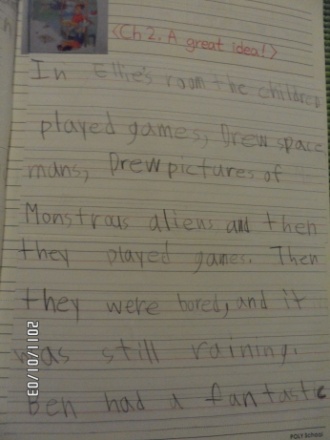 <Ch 2. A great idea!>
In Ellie's room the children
played games, Drew space
mans, Drew pictures of
Monstrous aliens and then
they played games. Then
they were bored, and it
was still raining.
Ben had a fantastic
03/10/2011